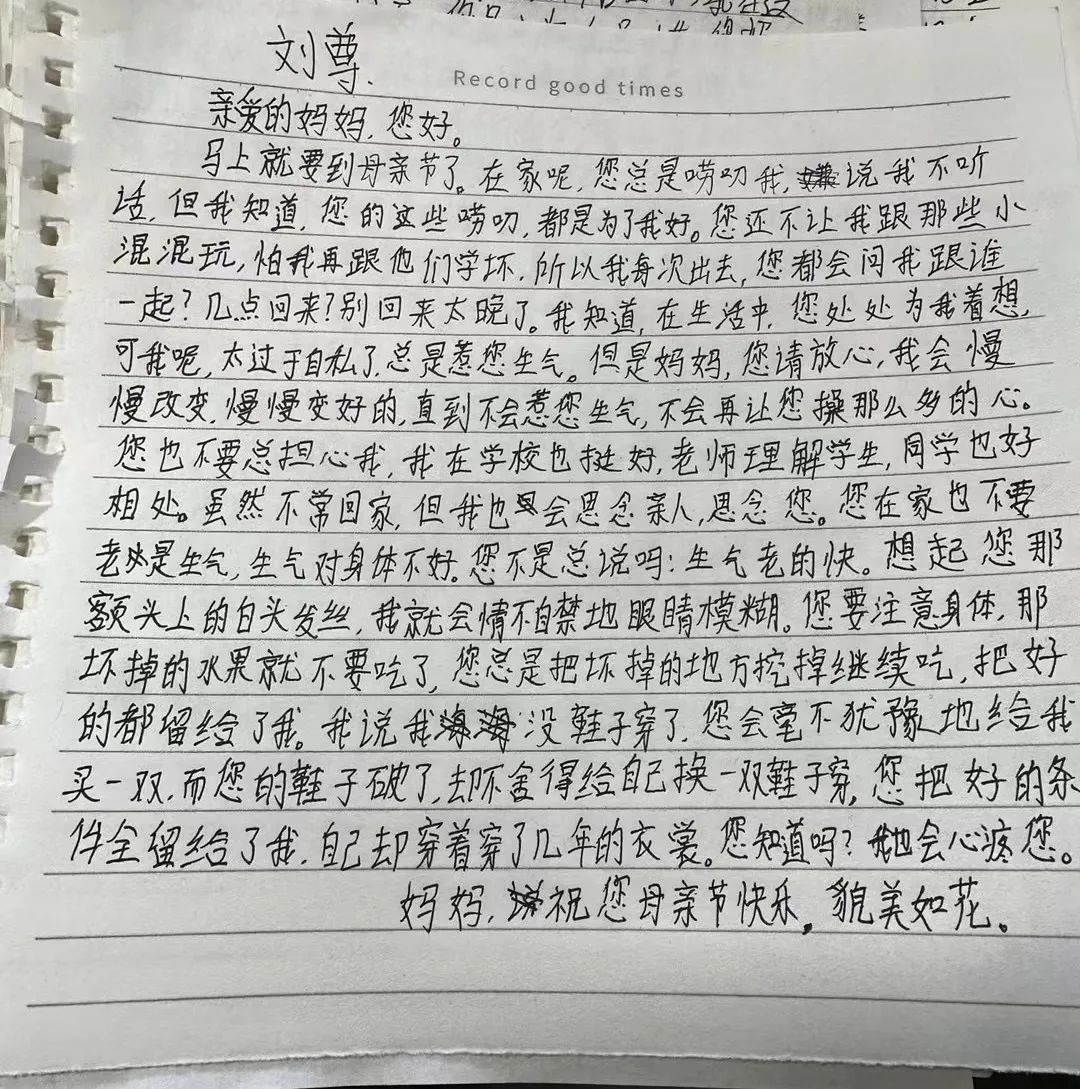 刘尊.
Record good times
亲爱的妈妈,您好。
马上就要到母亲节了。在家呢,您总是唠叨我,说我不听
话,但我知道,您的这些唠叨,都是为了我好。您还不让我跟那些小
混混玩,怕我再跟他们学坏,所以我每次出去,您都会问我跟谁
一起?几点回来?别回来太晚了。我知道,在生活中,您处处为我着想,
可我呢,太过于自私了,总是惹您生气。但是妈妈,您请放心,我会慢
慢改变,慢慢变好的,直到不会惹您生气,不会再让您操那么多的心。
您也不要总担心我,我在学校也挺好,老师理解学生,同学也好
相处。虽然不常回家,但我也会思念亲人,思念您。您在家也不要
老是生气,生气对身体不好。您不是总说吗:生气老的快。想起您那
额头上的白头发丝,我就会情不自禁地眼睛模糊。您要注意身体,那
坏掉的水果就不要吃了,您总是把坏掉的地方挖掉继续吃,把好
的都留给了我。我说我没鞋子穿了,您会毫不犹豫地给我
买一双,而您的鞋子破了,却不舍得给自己换一双鞋子穿,您把好的条
件全留给了我,自己却穿着穿了几年的衣裳。您知道吗?我也会心疼您。
妈妈,祝您母亲节快乐,貌美如花。